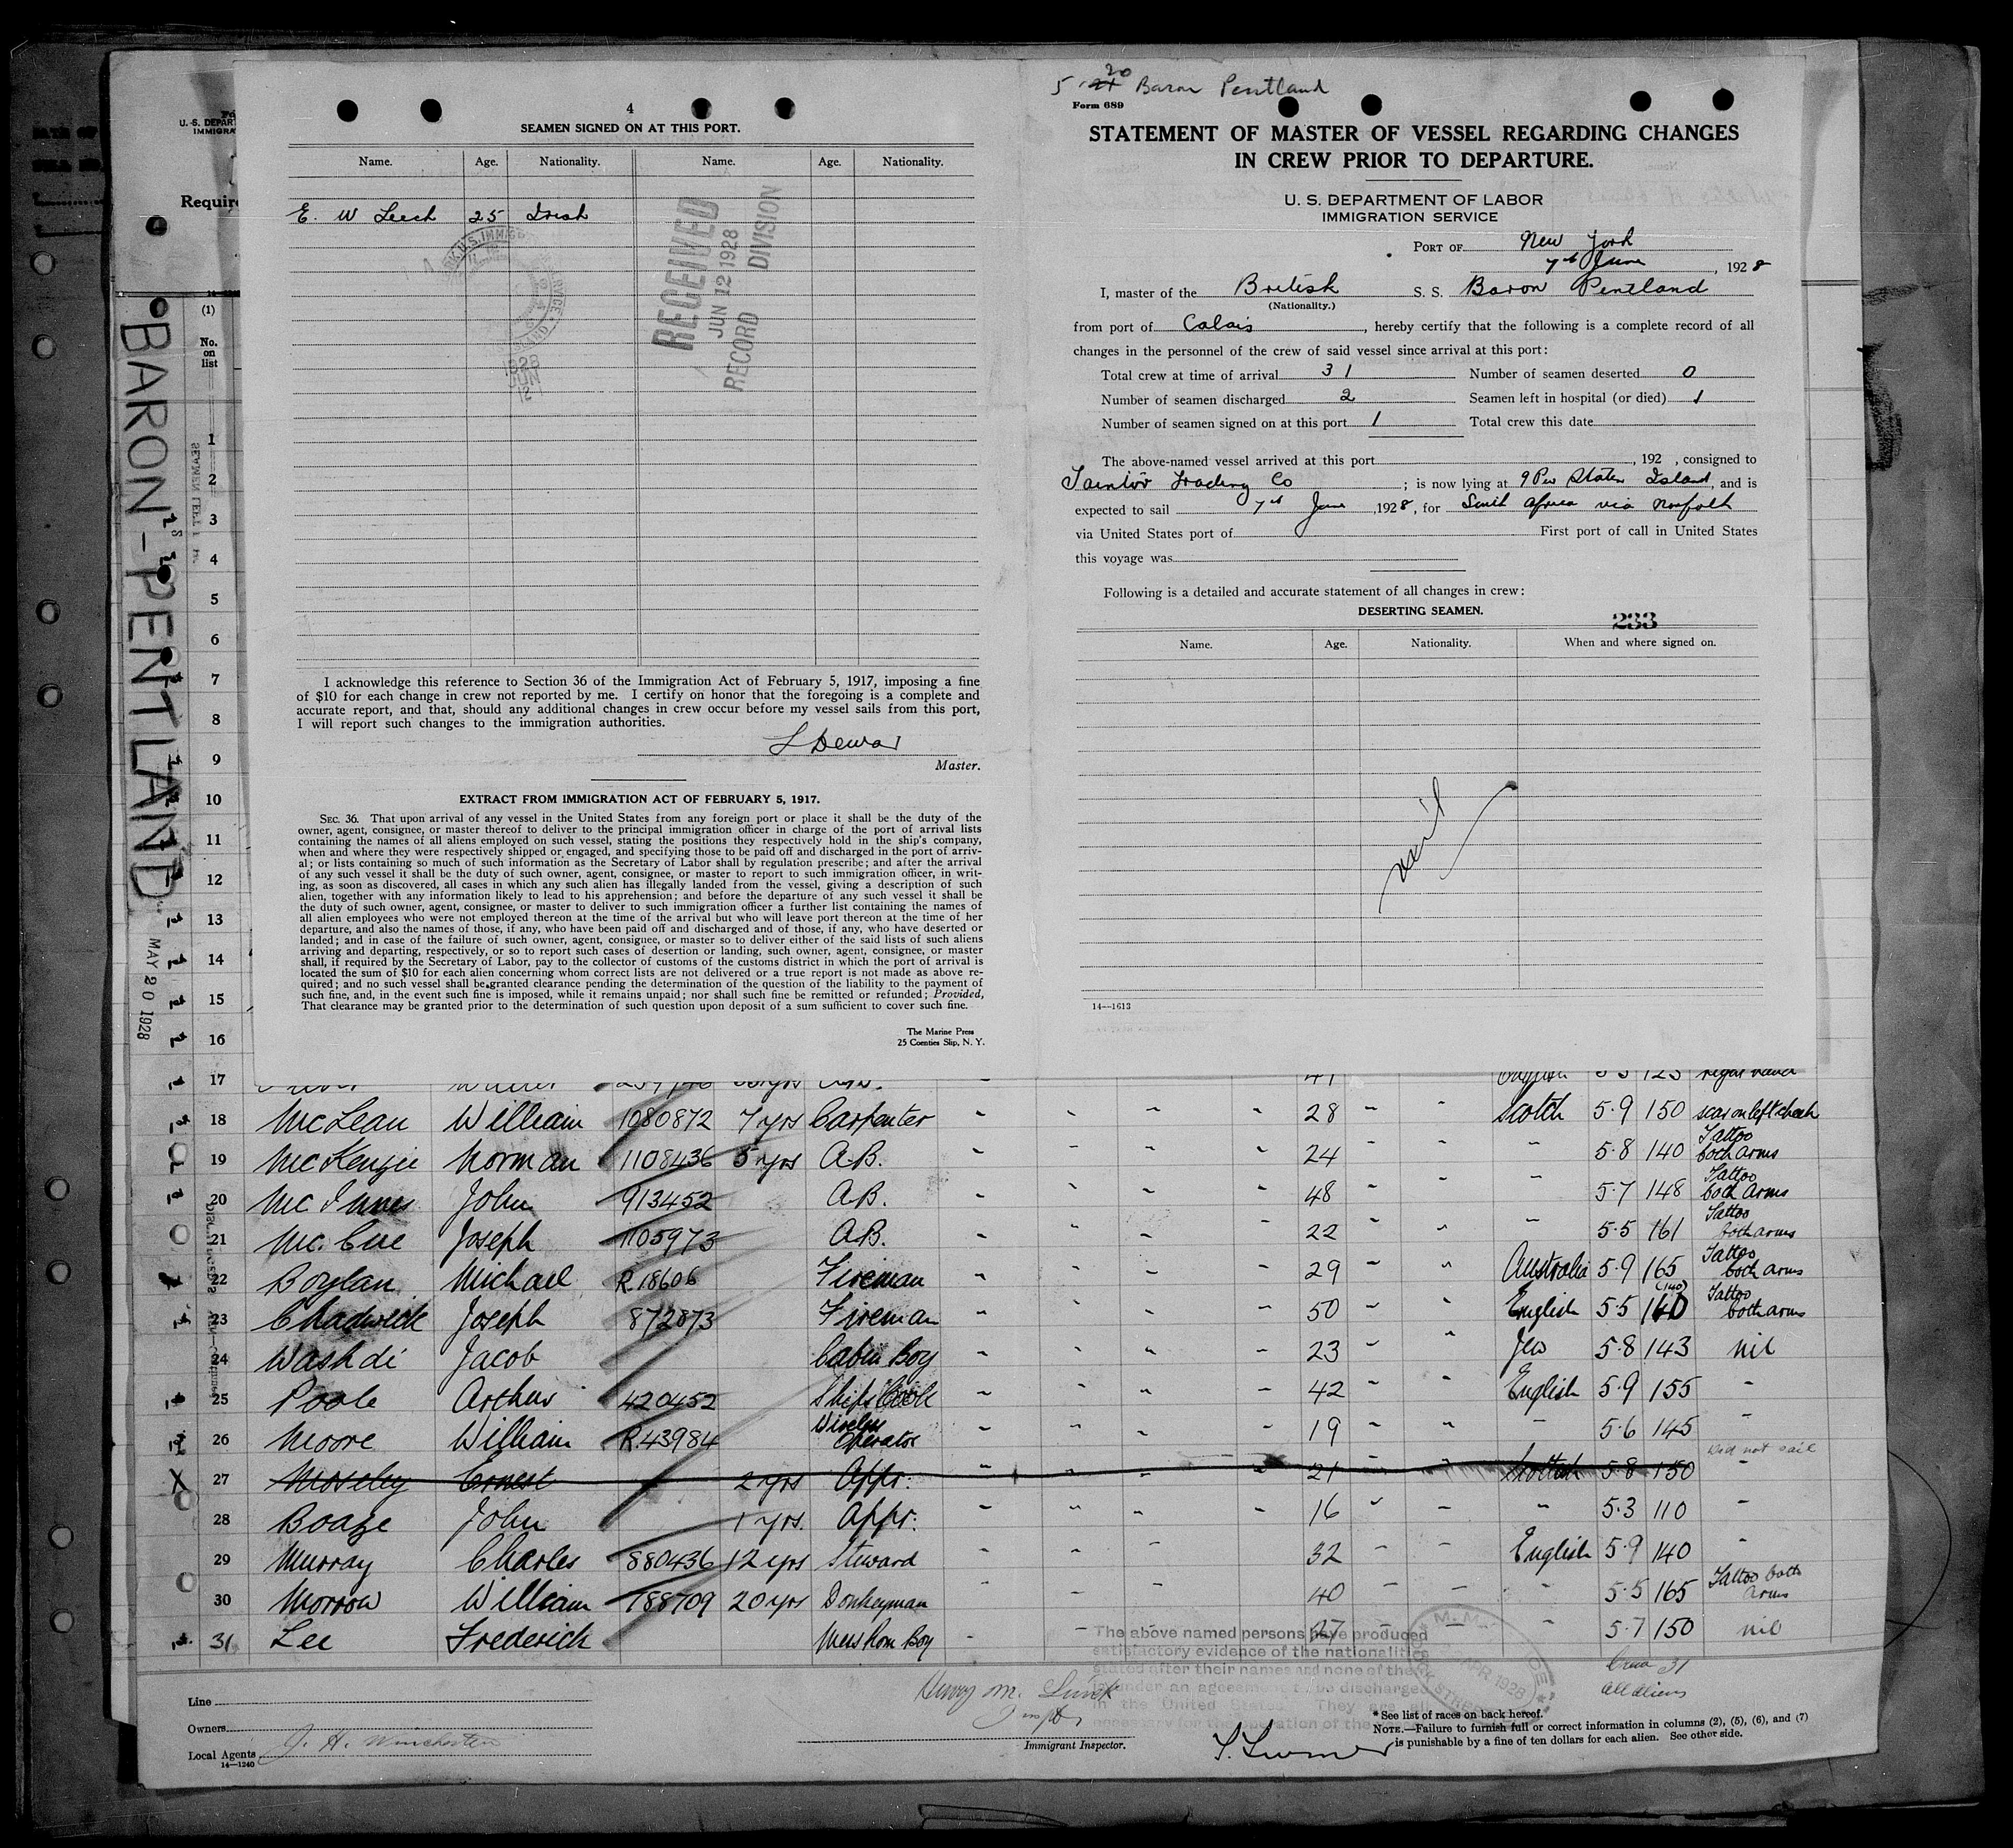 4
SEAMEN SIGNED ON AT THIS PORT.
Name. Age. Nationality. Name. Age. Nationality.
E. W Leech 25 Irish
RECEIVED
JUN 12 1928
RECORD DIVISION
1928
JUN
12
I acknowledge this reference to Section 36 of the Immigration Act of February 5, 1917, imposing a fine
of $10 for each change in crew not reported by me. I certify on honor that the foregoing is a complete and
accurate report, and that, should any additional changes in crew occur before my vessel sails from this port,
I will report such changes to the immigration authorities.
Dewar
Master.
EXTRACT FROM IMMIGRATION ACT OF FEBRUARY 5, 1917.
SEC. 36. That upon arrival of any vessel in the United States from any foreign port or place it shall be the duty of the
owner, agent, consignee, or master thereof to deliver to the principal immigration officer in charge of the port of arrival lists
containing the names of all aliens employed on such vessel, stating the positions they respectively hold in the ship's company,
when and where they were respectively shipped or engaged, and specifying those to be paid off and discharged in the port of arriv-
al; or lists containing so much of such information as the Secretary of Labor shall by regulation prescribe; and after the arrival
of any such vessel it shall be the duty of such owner, agent, consignee, or master to report to such immigration officer, in writ-
ing, as soon as discovered, all cases in which any such alien has illegally landed from the vessel, giving a description of such
alien, together with any information likely to lead to his apprehension; and before the departure of any such vessel it shall be
the duty of such owner, agent, consignee, or master to deliver to such immigration officer a further list containing the names of
all alien employees who were not employed thereon at the time of the arrival but who will leave port thereon at the time of her
departure, and also the names of those, if any, who have been paid off and discharged and of those, if any, who have deserted or
landed; and in case of the failure of such owner, agent, consignee, or master so to deliver either of the said lists of such aliens
arriving and departing, respectively, or so to report such cases of desertion or landing, such owner, agent, consignee, or master
shall, if required by the Secretary of Labor, pay to the collector of customs of the customs district in which the port of arrival is
located the sum of $10 for each alien concerning whom correct lists are not delivered or a true report is not made as above re-
quired; and no such vessel shall be granted clearance pending the determination of the question of the liability to the payment of
such fine, and, in the event such fine is imposed, while it remains unpaid; nor shall such fine be remitted or refunded; Provided,
That clearance may be granted prior to the determination of such question upon deposit of a sum sufficient to cover such fine.
The Marine Press
25 Coenties Slip, N. Y.
5 20 Baron Pentland
Form 689
STATEMENT OF MASTER OF VESSEL REGARDING CHANGES
IN CREW PRIOR TO DEPARTURE.
U. S. DEPARTMENT OF LABOR
IMMIGRATION SERVICE
PORT OF New York
7th June, 1928
I, master of the British S. S. Baron Pentland
(Nationality.)
from port of Calais, hereby certify that the following is a complete record of all
changes in the personnel of the crew of said vessel since arrival at this port:
Total crew at time of arrival 31 Number of seamen deserted 0
Number of seamen discharged 2 Seamen left in hospital (or died) 1
Number of seamen signed on at this port 1 Total crew this date
The above-named vessel arrived at this port , 192 , consigned to
Tainter Trading Co ; is now lying at 9 Pier Staten Island, and is
expected to sail 7th June, 1928, for South Africa via Norfolk
via United States port of First port of call in United States
this voyage was
Following is a detailed and accurate statement of all changes in crew:
DESERTING SEAMEN.
233
Name. Age. Nationality. When and where signed on.
nil
14—1613
U. S. DEPAR
IMMIGRA
Require
(1)
No.
on
list
BARON-PENTLAND
MAY 20 1928
1
2
3
4
5
6
7
8
9
10
11
12
13
14
15
16
17
18 McLean William 1080872 7 yrs Carpenter 28 Scotch 5.9 150 scar on left cheek
19 McKenzie Norman 1108436 5 yrs A.B. 24 " 5.8 140 Tattoo both arms
20 McInnes John 913452 A.B. 48 " 5.7 148 Tattoo both arms
21 Mc.Cue Joseph 1105973 A.B. 22 " 5.5 161 Tattoo both arms
22 Boylan Michael R.18606 Fireman 29 " Australia 5.9 165 Tattoo both arms
23 Chadwick Joseph 872873 Fireman 50 " English 5.5 140 (140) Tattoo both arms
24 Washdi Jacob Cabin Boy 23 " Jew 5.8 143 nil
25 Poole Arthur 420452 Ships Cook 42 " English 5.9 155 "
26 Moore William R.43984 Wireless Operator 19 " 5.6 145 "
27 Moseley Ernest 2 yrs Appr. 21 Scottish 5.8 150 " Did not sail
28 Boage John 1 yrs. Appr. 16 " 5.3 110 "
29 Murray Charles 880436 12 yrs Steward 32 English 5.9 140 "
30 Morrow William 788709 20 yrs Donkeyman 40 " 5.5 165 Tattoo both Arms
31 Lee Frederick Mess Rom Boy 27 " 5.7 150 nil
The above named persons have produced
satisfactory evidence of the nationalities
stated after their names and none of the
under an agreement to be discharged
in the United States. They are all
necessary for the operation of the
Crew 31
all aliens
Line
Owners
Local Agents J. H. Winchester
14—1240
Henry M.
Immigrant Inspector.
* See list of races on back hereof.
NOTE.—Failure to furnish full or correct information in columns (2), (5), (6), and (7)
is punishable by a fine of ten dollars for each alien. See other side.